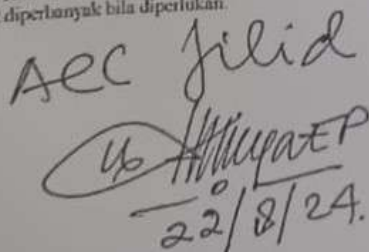 diperbanyak bila diperlukan.
ACC Jilid
22/8/24.